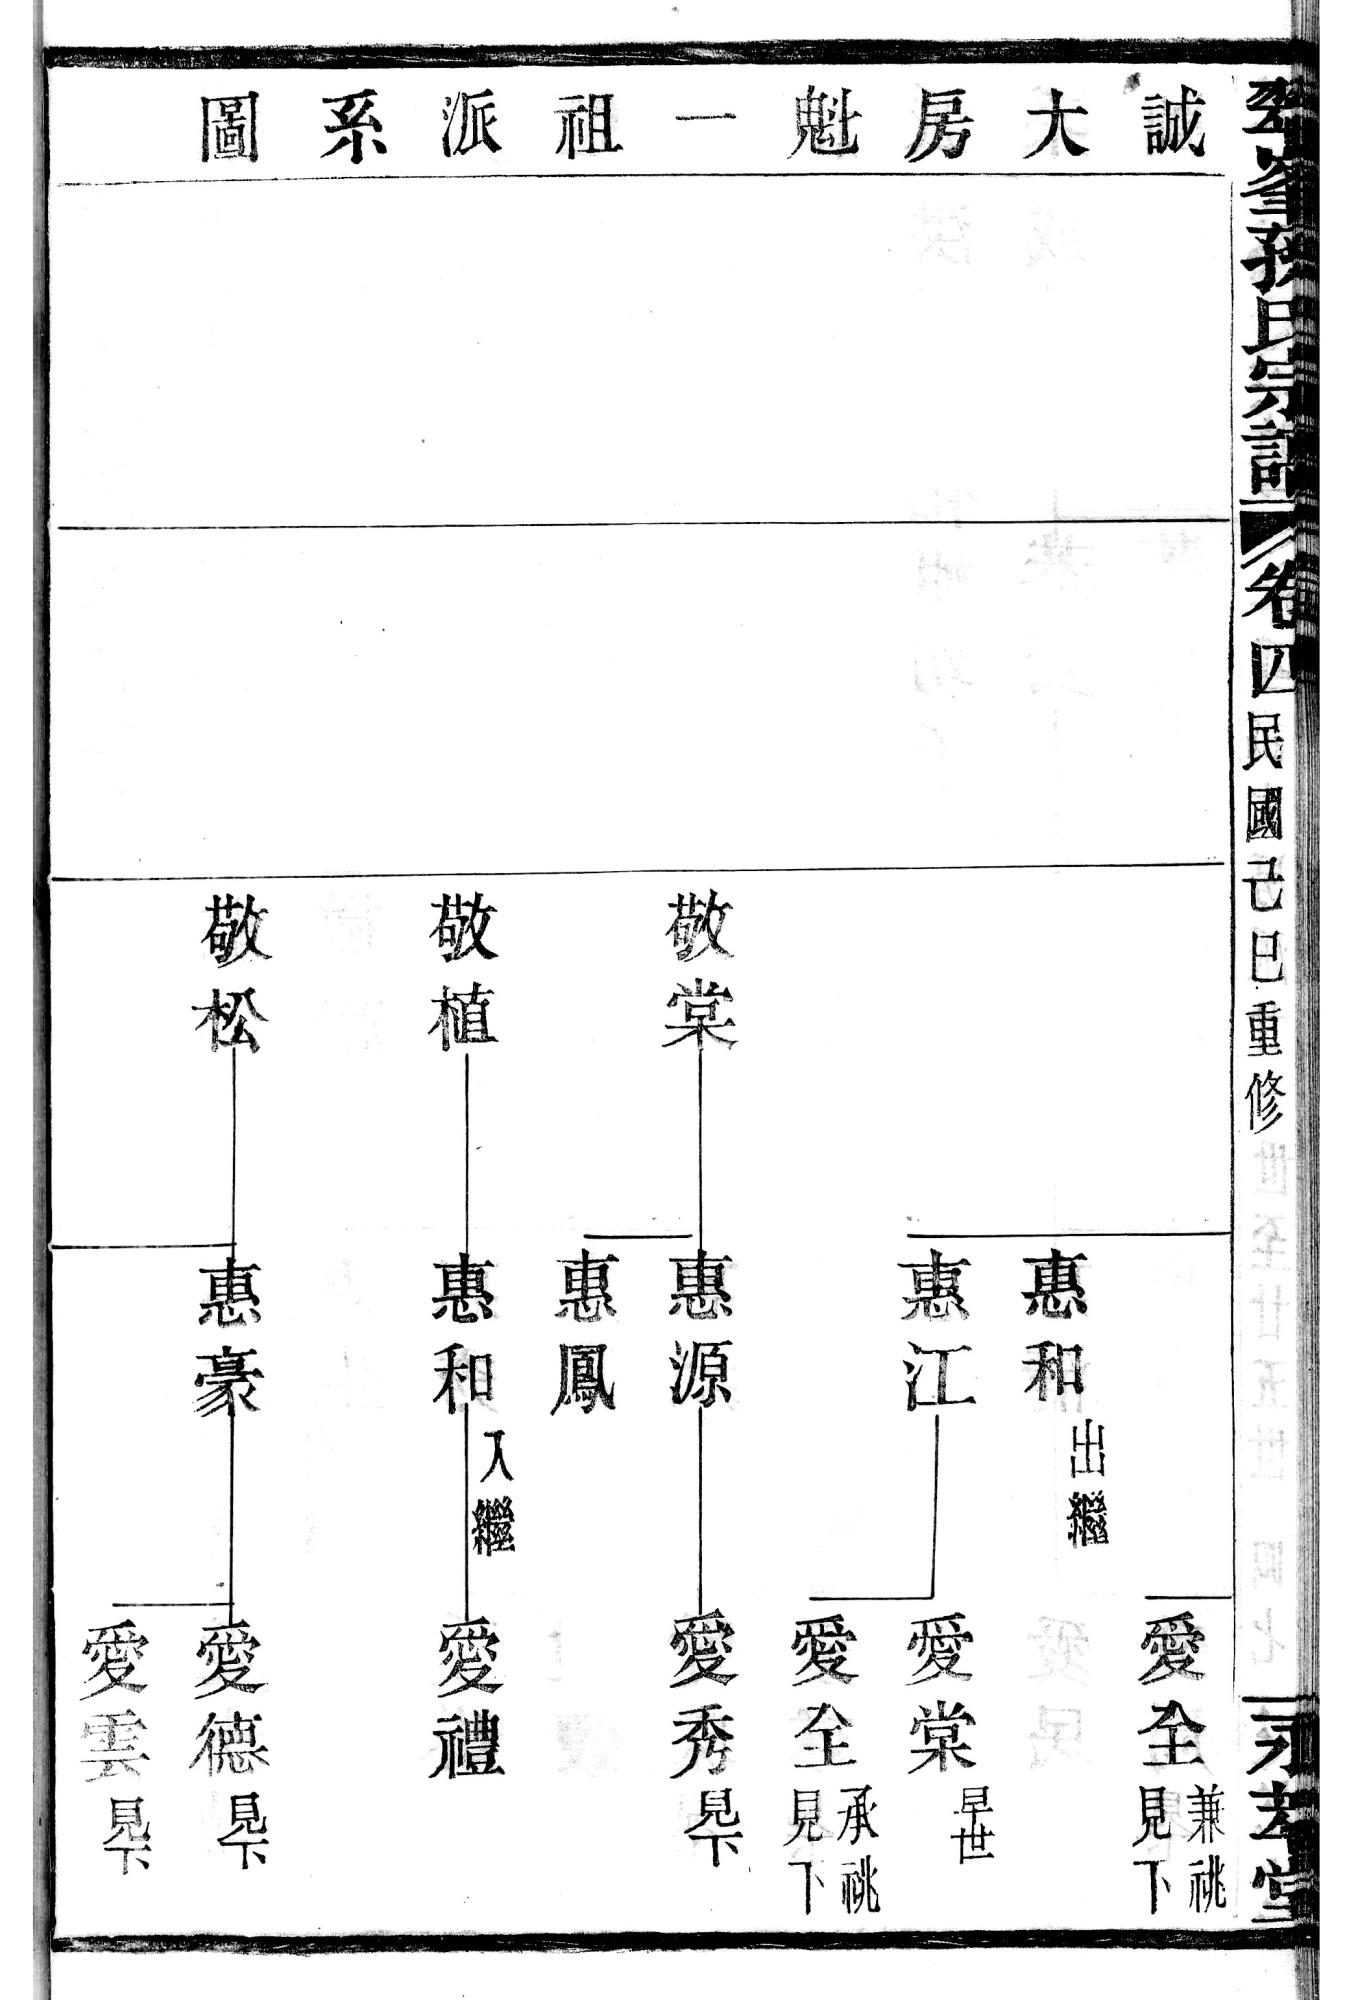 誠大房魁一祖派系圖
孫氏宗譜
卷四
民國己巳重修
敬棠
敬植
敬松
惠和 出繼
惠江
惠源
惠鳳
惠和 入繼
惠豪
愛全 兼祧 見下
愛棠 早世
愛全 承祧 見下
愛秀 見下
愛禮
愛德 見下
愛雲 見下
堂